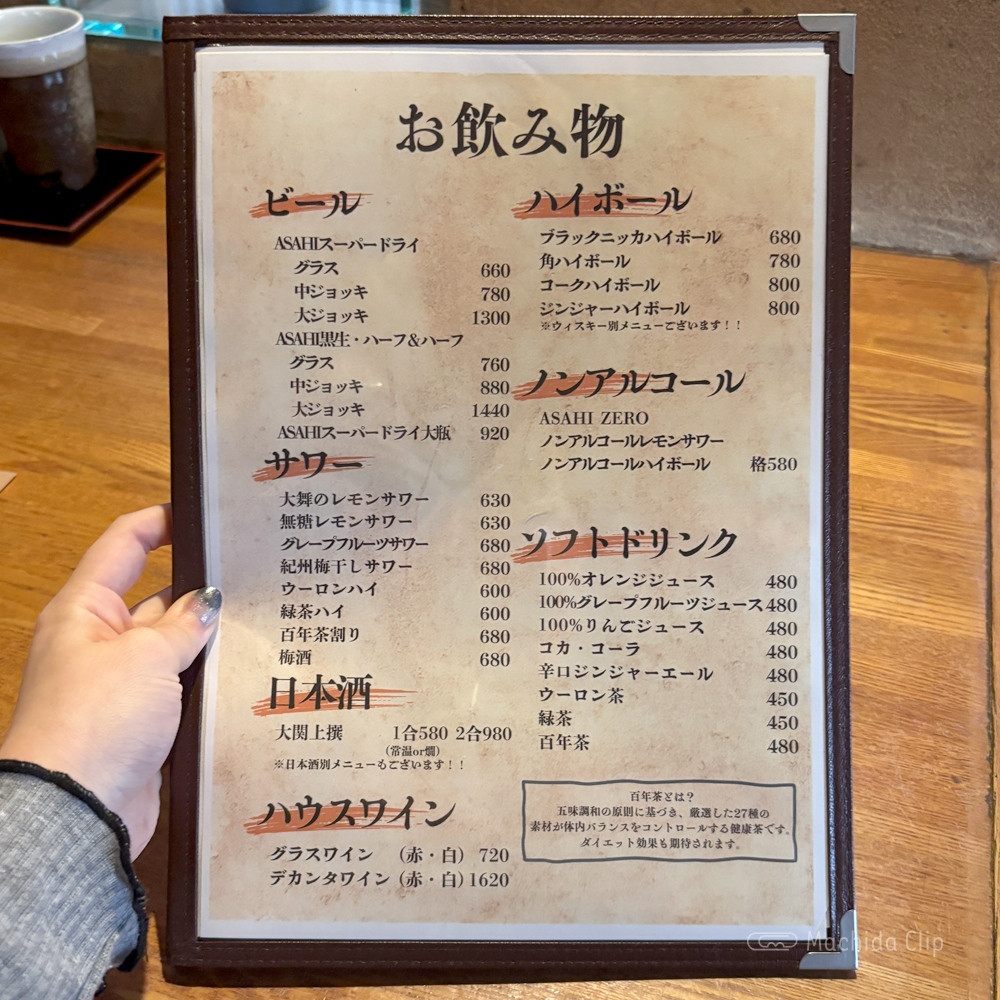 お飲み物
ビール
ASAHIスーパードライ
グラス 660
中ジョッキ 780
大ジョッキ 1300
ASAHI黒生・ハーフ&ハーフ
グラス 760
中ジョッキ 880
大ジョッキ 1440
ASAHIスーパードライ大瓶 920
サワー
大舞のレモンサワー 630
無糖レモンサワー 630
グレープフルーツサワー 680
紀州梅干しサワー 680
ウーロンハイ 600
緑茶ハイ 600
百年茶割り 680
梅酒 680
日本酒
大関上撰 1合580 2合980
(常温or燗)
※日本酒別メニューもございます!!
ハウスワイン
グラスワイン (赤・白) 720
デカンタワイン (赤・白) 1620
ハイボール
ブラックニッカハイボール 680
角ハイボール 780
コークハイボール 800
ジンジャーハイボール 800
※ウィスキー別メニューございます!!
ノンアルコール
ASAHI ZERO
ノンアルコールレモンサワー
ノンアルコールハイボール 格580
ソフトドリンク
100%オレンジジュース 480
100%グレープフルーツジュース 480
100%りんごジュース 480
コカ・コーラ 480
辛口ジンジャーエール 480
ウーロン茶 450
緑茶 450
百年茶 480
百年茶とは?
五味調和の原則に基づき、厳選した27種の
素材が体内バランスをコントロールする健康茶です。
ダイエット効果も期待されます。
Machida Clip